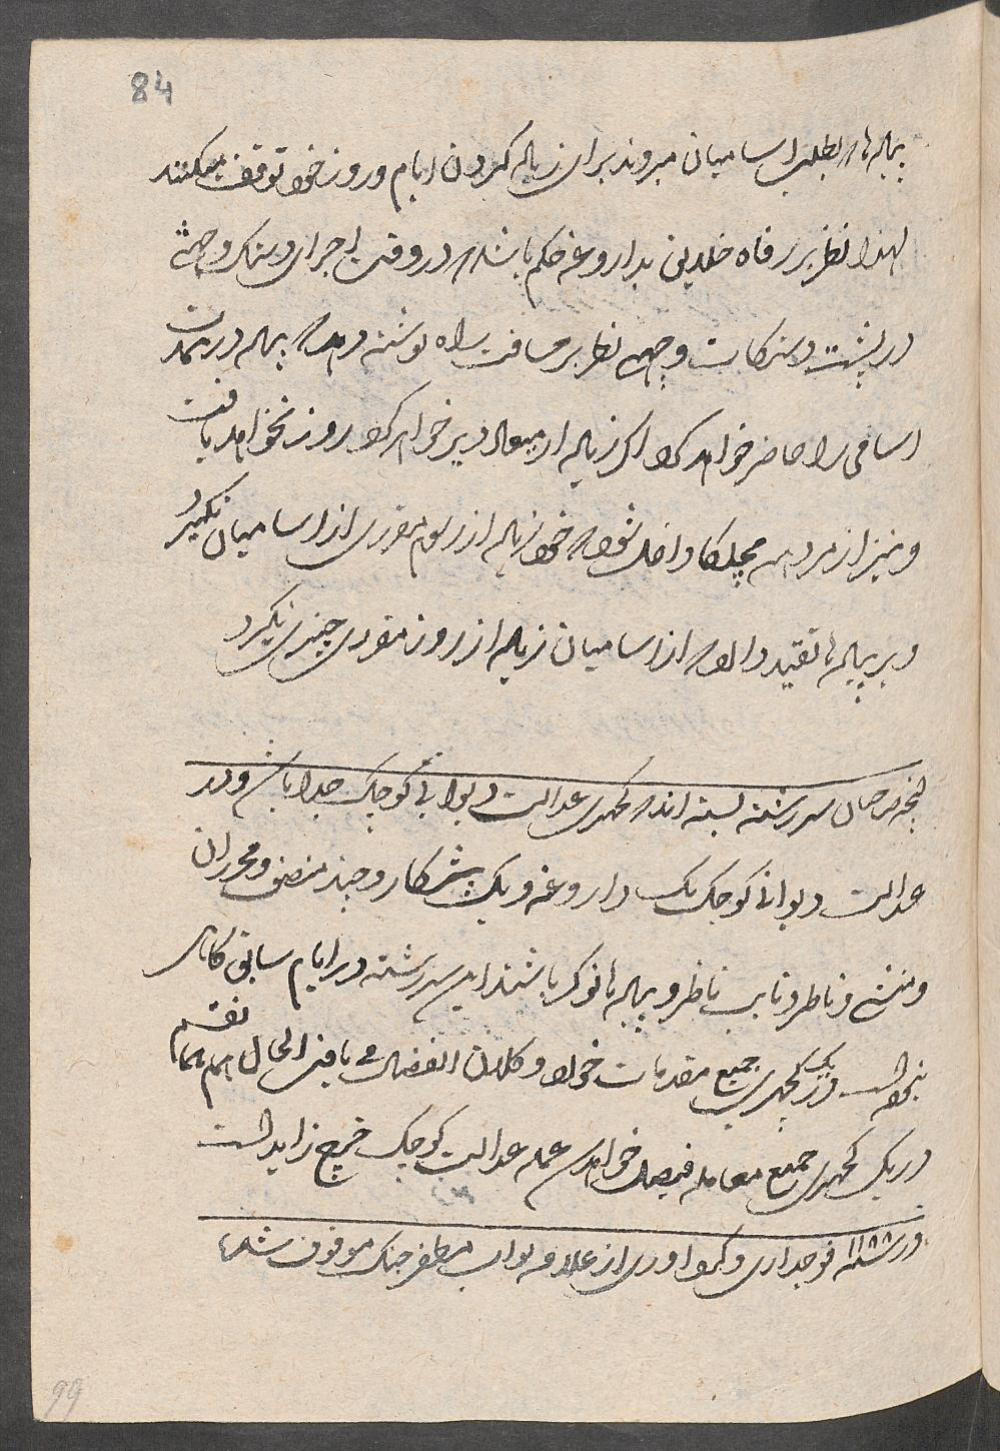 84
پیاده‌ها بطلب اسامیان میروند برای زیاده کردن ایام و روز خود توقف میکنند
لهذا نظر بر رفاه خلایق بداروغه حکم باشد در وقت اجرای دستک و چتهی
در پشت دستکات و چتهی نظر بر مسافت راه نوشته دهد پیاده در مدت
اسامی را حاضر خواهد کرد اگر زیاده از میعاد دیر خواهد کرد روز نخواهد یافت
و نیز از مردهه مچلکا داخل شود خود زیاده از رسوم مقرری از اسامیان نگیرد
و بر پیاده‌ها تقید دارد از اسامیان زیاده از روز مقرری چیزی نگیرد
سررشته بسته‌اند کچهری عدالت دیوانی کوچک جدا باشد و در
عدالت دیوانی کوچک یک داروغه و یک پیشکار و چند منصف و محرران
و منشی و ناظر و نایب ناظر و پیاده‌ها نوکر باشند این سررشته در ایام سابق گاهی
نبود در یک کچهری جمیع مقدمات خورد و کلان انفصال می‌یافت الحال هم
در یک کچهری جمیع معامله فیصل خواهد شد عمله عدالت کوچک خرچ زاید است
در سنه ۱۱۸۸ فوجداری و از علاقه نواب مظفر جنگ موقوف شد
99